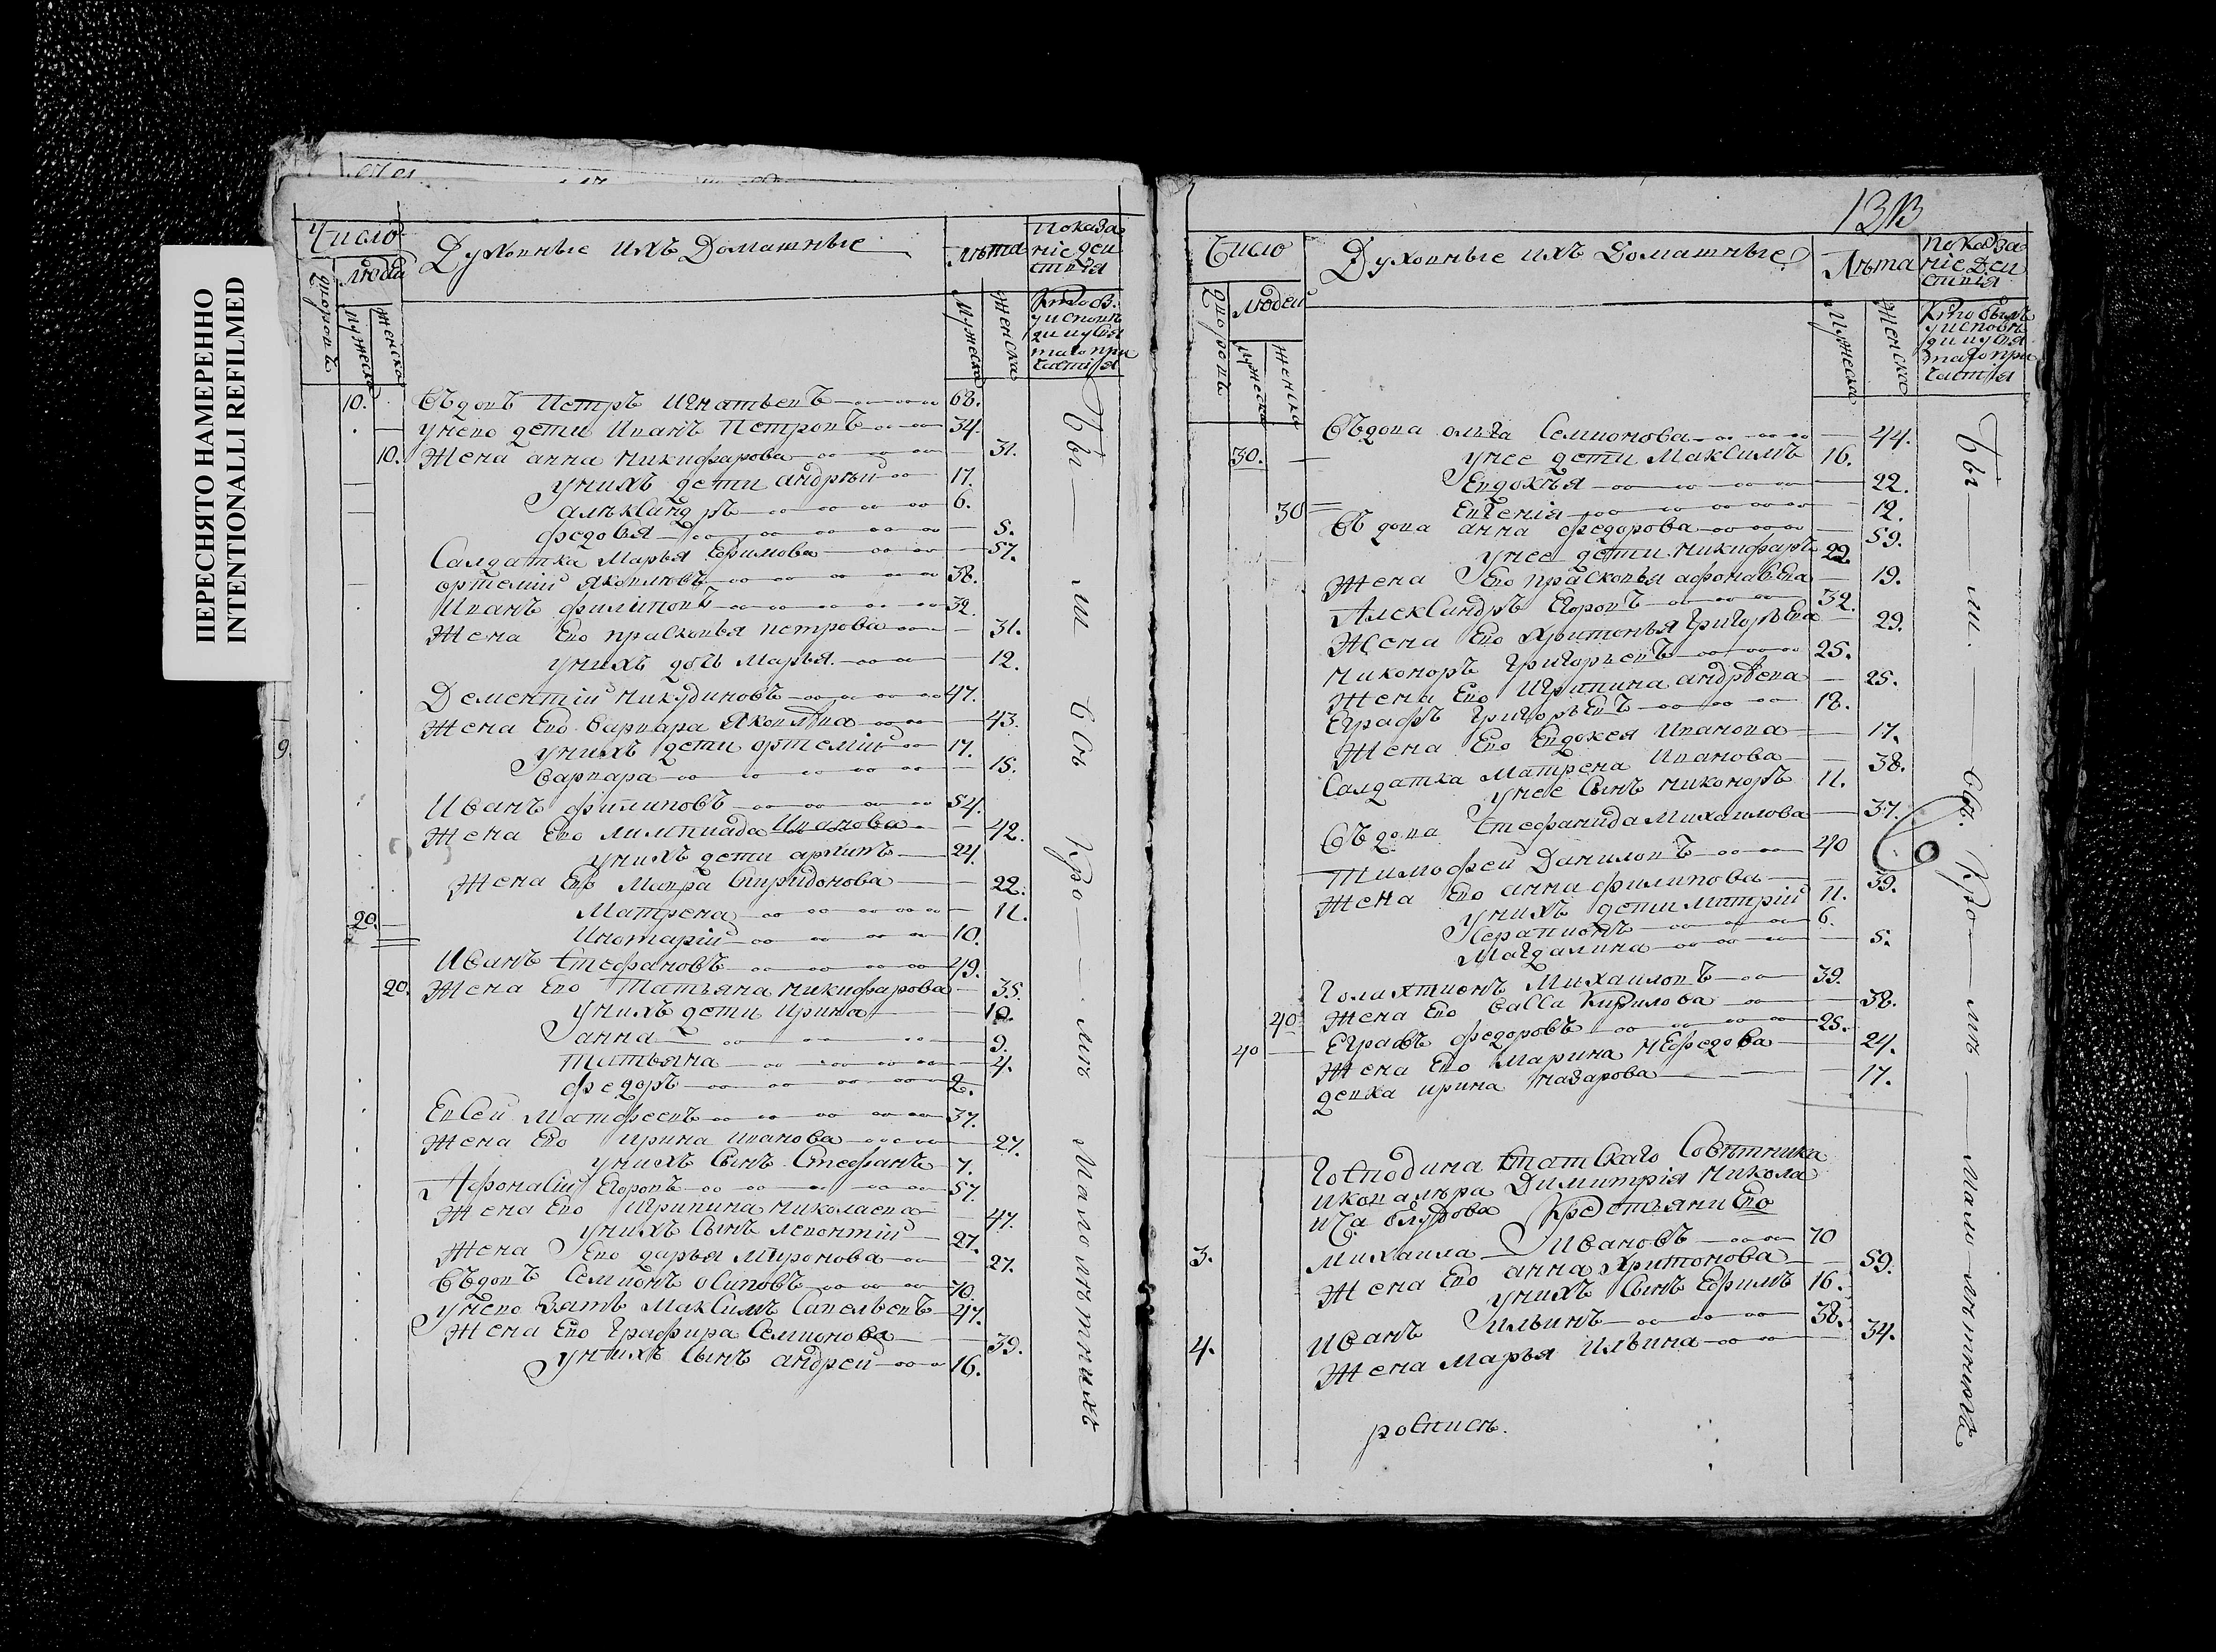 ПЕРЕСНЯТО НАМЕРЕННО
INTENTIONALLI REFILMED
Число
Духовные ихъ Домашные
лѣта
показа
ніе дей
ствія
дворовъ
людей
мужеска
женска
мужеска
женска
Кто бы
у испове
ди и у свя
таго при
частія
10. Вдовъ Петръ Игнатьевъ 68.
у нево дети Иванъ Петровъ 34.
10. Жена анна никифарова 31.
у нихъ дети андрѣй 17.
алѣксандръ 6.
федосья 5.
Салдатка Марья Ефимова 57.
ортемій яковлевъ 38.
Иванъ филиповъ 32.
Жена Ево прасковья петрова 31.
у нихъ дочь Марья 12.
Дементій никудиновъ 47.
Жена Ево варвара яковлева 43.
у нихъ дети ортемій 17.
варвара 15.
Иванъ филиповъ 54.
Жена Ево лимпиада Иванова 42.
у нихъ дети архипъ 24.
Жена Ево Мавра Спиридонова 22.
Матрена 11.
20. Инотарій 10.
Иванъ Стефановъ 49.
20. Жена Ево Татьяна никифарова 35.
у нихъ дети Ирина 10.
анна 9.
татьяна 4.
федоръ 2.
Евсей Матфеевъ 37.
Жена Ево Ирина иванова 27.
у нихъ сынъ Стефанъ 7.
Афонасій Егоровъ 57.
Жена Ево Игрипина николаева 47.
у нихъ сынъ левонтій 27.
Жена Ево дарья миронова 27.
Вдовъ Семионъ осиповъ 70.
у нево зять Максимъ Савельевъ 47.
Жена Ево Графира Семионова 39.
у нихъ сынъ андрей 16.
Бы ли всѣ Кро мѣ Малолѣтнихъ
9.
1313
Число
Духовные ихъ Домашные
Лѣта
показа
ніе дей
ствія
дворовъ
людей
мужеска
женска
мужеска
женска
Кто былъ
у исповѣ
ди и у свя
таго при
частія
Вдова ольга Семионова 44.
30. у нее дети Максимъ 16.
Евдокѣя 22.
30 Евгенія 12.
Вдова анна федорова 59.
у нее дети никифаръ 22
Жена Ево прасковья афонасева 19.
Александръ Егоровъ 32.
Жена Ево Хритонья Григорьева 29.
никоноръ Григорьевъ 25.
Жена Ево Игрипина андрѣева 25.
Еграфъ Григорьевъ 18.
Жена Ево Евдокея Иванова 17.
Салдатка Матрена Иванова 38.
у нее сынъ никоноръ 11.
Вдова Стефанида Михаилова 37.
Тимофей Даниловъ 40
Жена Ево анна филипова 39.
у нихъ дети митрій 11.
Серапионъ 6.
Магдалина 5.
Голихтионъ Михаиловъ 39.
40 Жена Ево васса Кирилова 38.
40 Еграфъ федоровъ 25.
Жена Ево Марина нефедова 24.
девка ирина назарова 17.
Господина Статскаго Совѣтника
и ковалѣра Димитрія никола
ича блудова Крестьяни Ево
3. Михаила Ивановъ 70
Жена Ево анна Хритонова 59.
у нихъ сынъ Ефимъ 16.
4. Иванъ Ильинъ 38.
Жена Марья Ильина 34.
роспись.
Бы ли. всѣ. Кро мѣ Мало лѣтнихъ